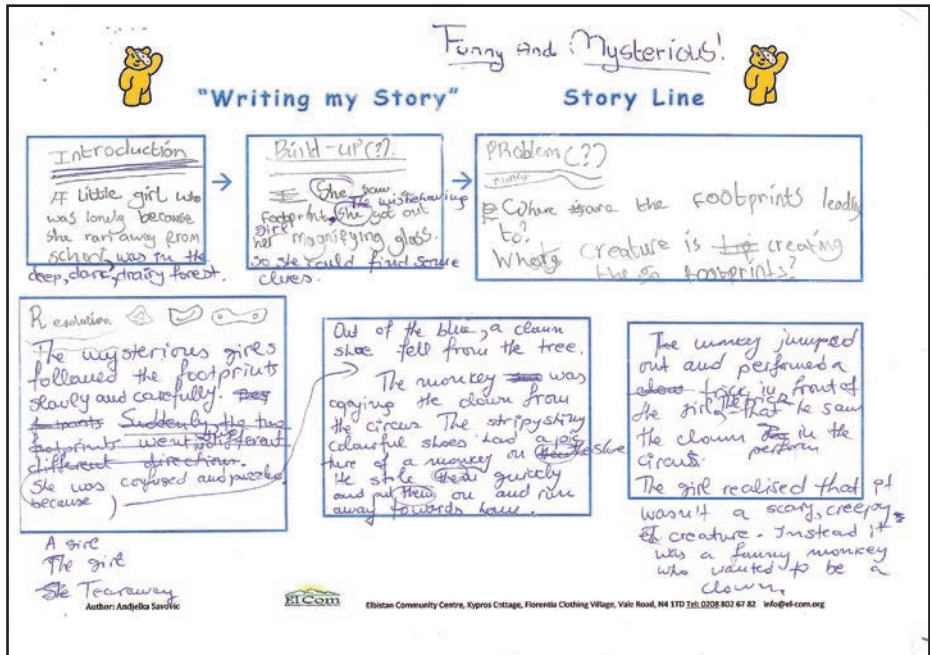 Funny And Mysterious!
"Writing my Story" Story Line
Introduction
A little girl who
was lonely because
she ran away from
school, was in the
deep, dark, drairy forest.
Build-up(??)
She saw a
The misbehaving
footprint, she got out
girl
her magnifying glass.
so she could find some
clues.
Problem(??)
Where are the footprints leading
to?
What creature is creating
the footprints?
Resolution
The mysterious girls
followed the footprints
slowly and carefully. They
footprints Suddenly, the two
footprints went different
different directions.
She was confused and puzzled
because
A girl
The girl
She Tearaway
Out of the blue, a clown
shoe fell from the tree.
The monkey was
copying the clown from
the circus. The stripyshiny
colourful shoes had a pic
ture of a monkey on the shoe
He stole them quickly
and put them on and run
away towards home.
The monkey jumped
out and performed a
trick in front of
the girl, The trick that he saw
the clown in the
perform
circus.
The girl realised that it
wasn't a scary, creepy,
creature. Instead it
was a funny monkey
who wanted to be a
clown.
Author: Andjelka Savovic
El Com
Elbistan Community Centre, Kypros Cottage, Florentia Clothing Village, Vale Road, N4 1TD Tel: 0208 802 67 82 info@el-com.org